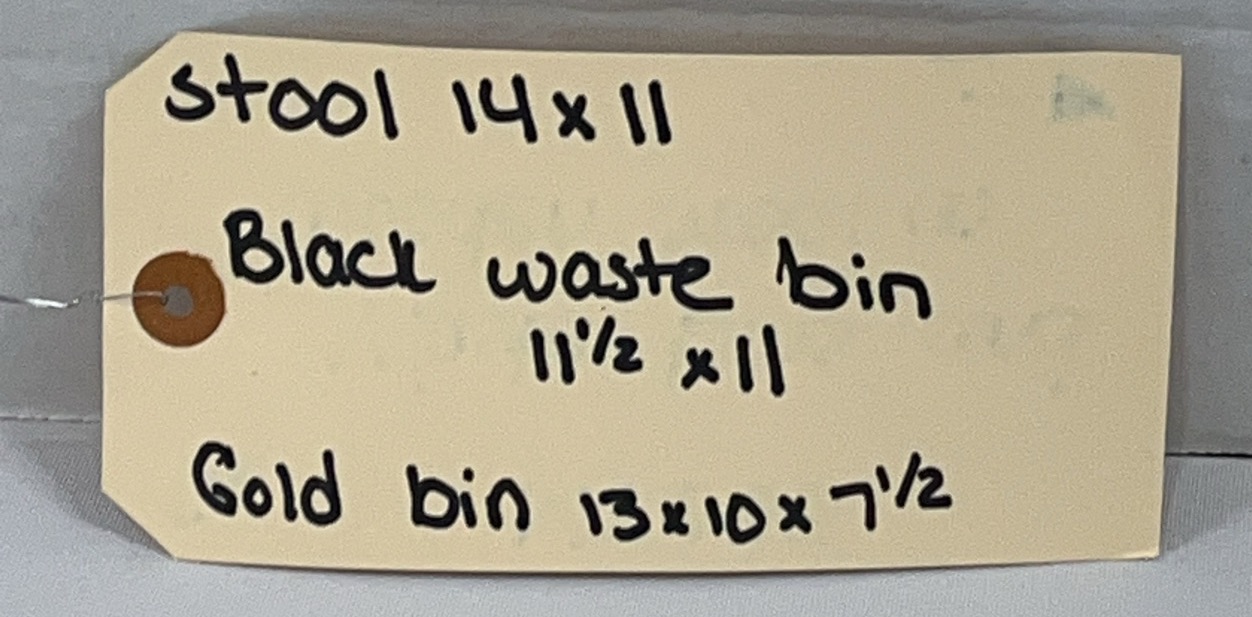 Stool 14 x 11
Black waste bin
11 1/2 x 11
Gold bin 13 x 10 x 7 1/2